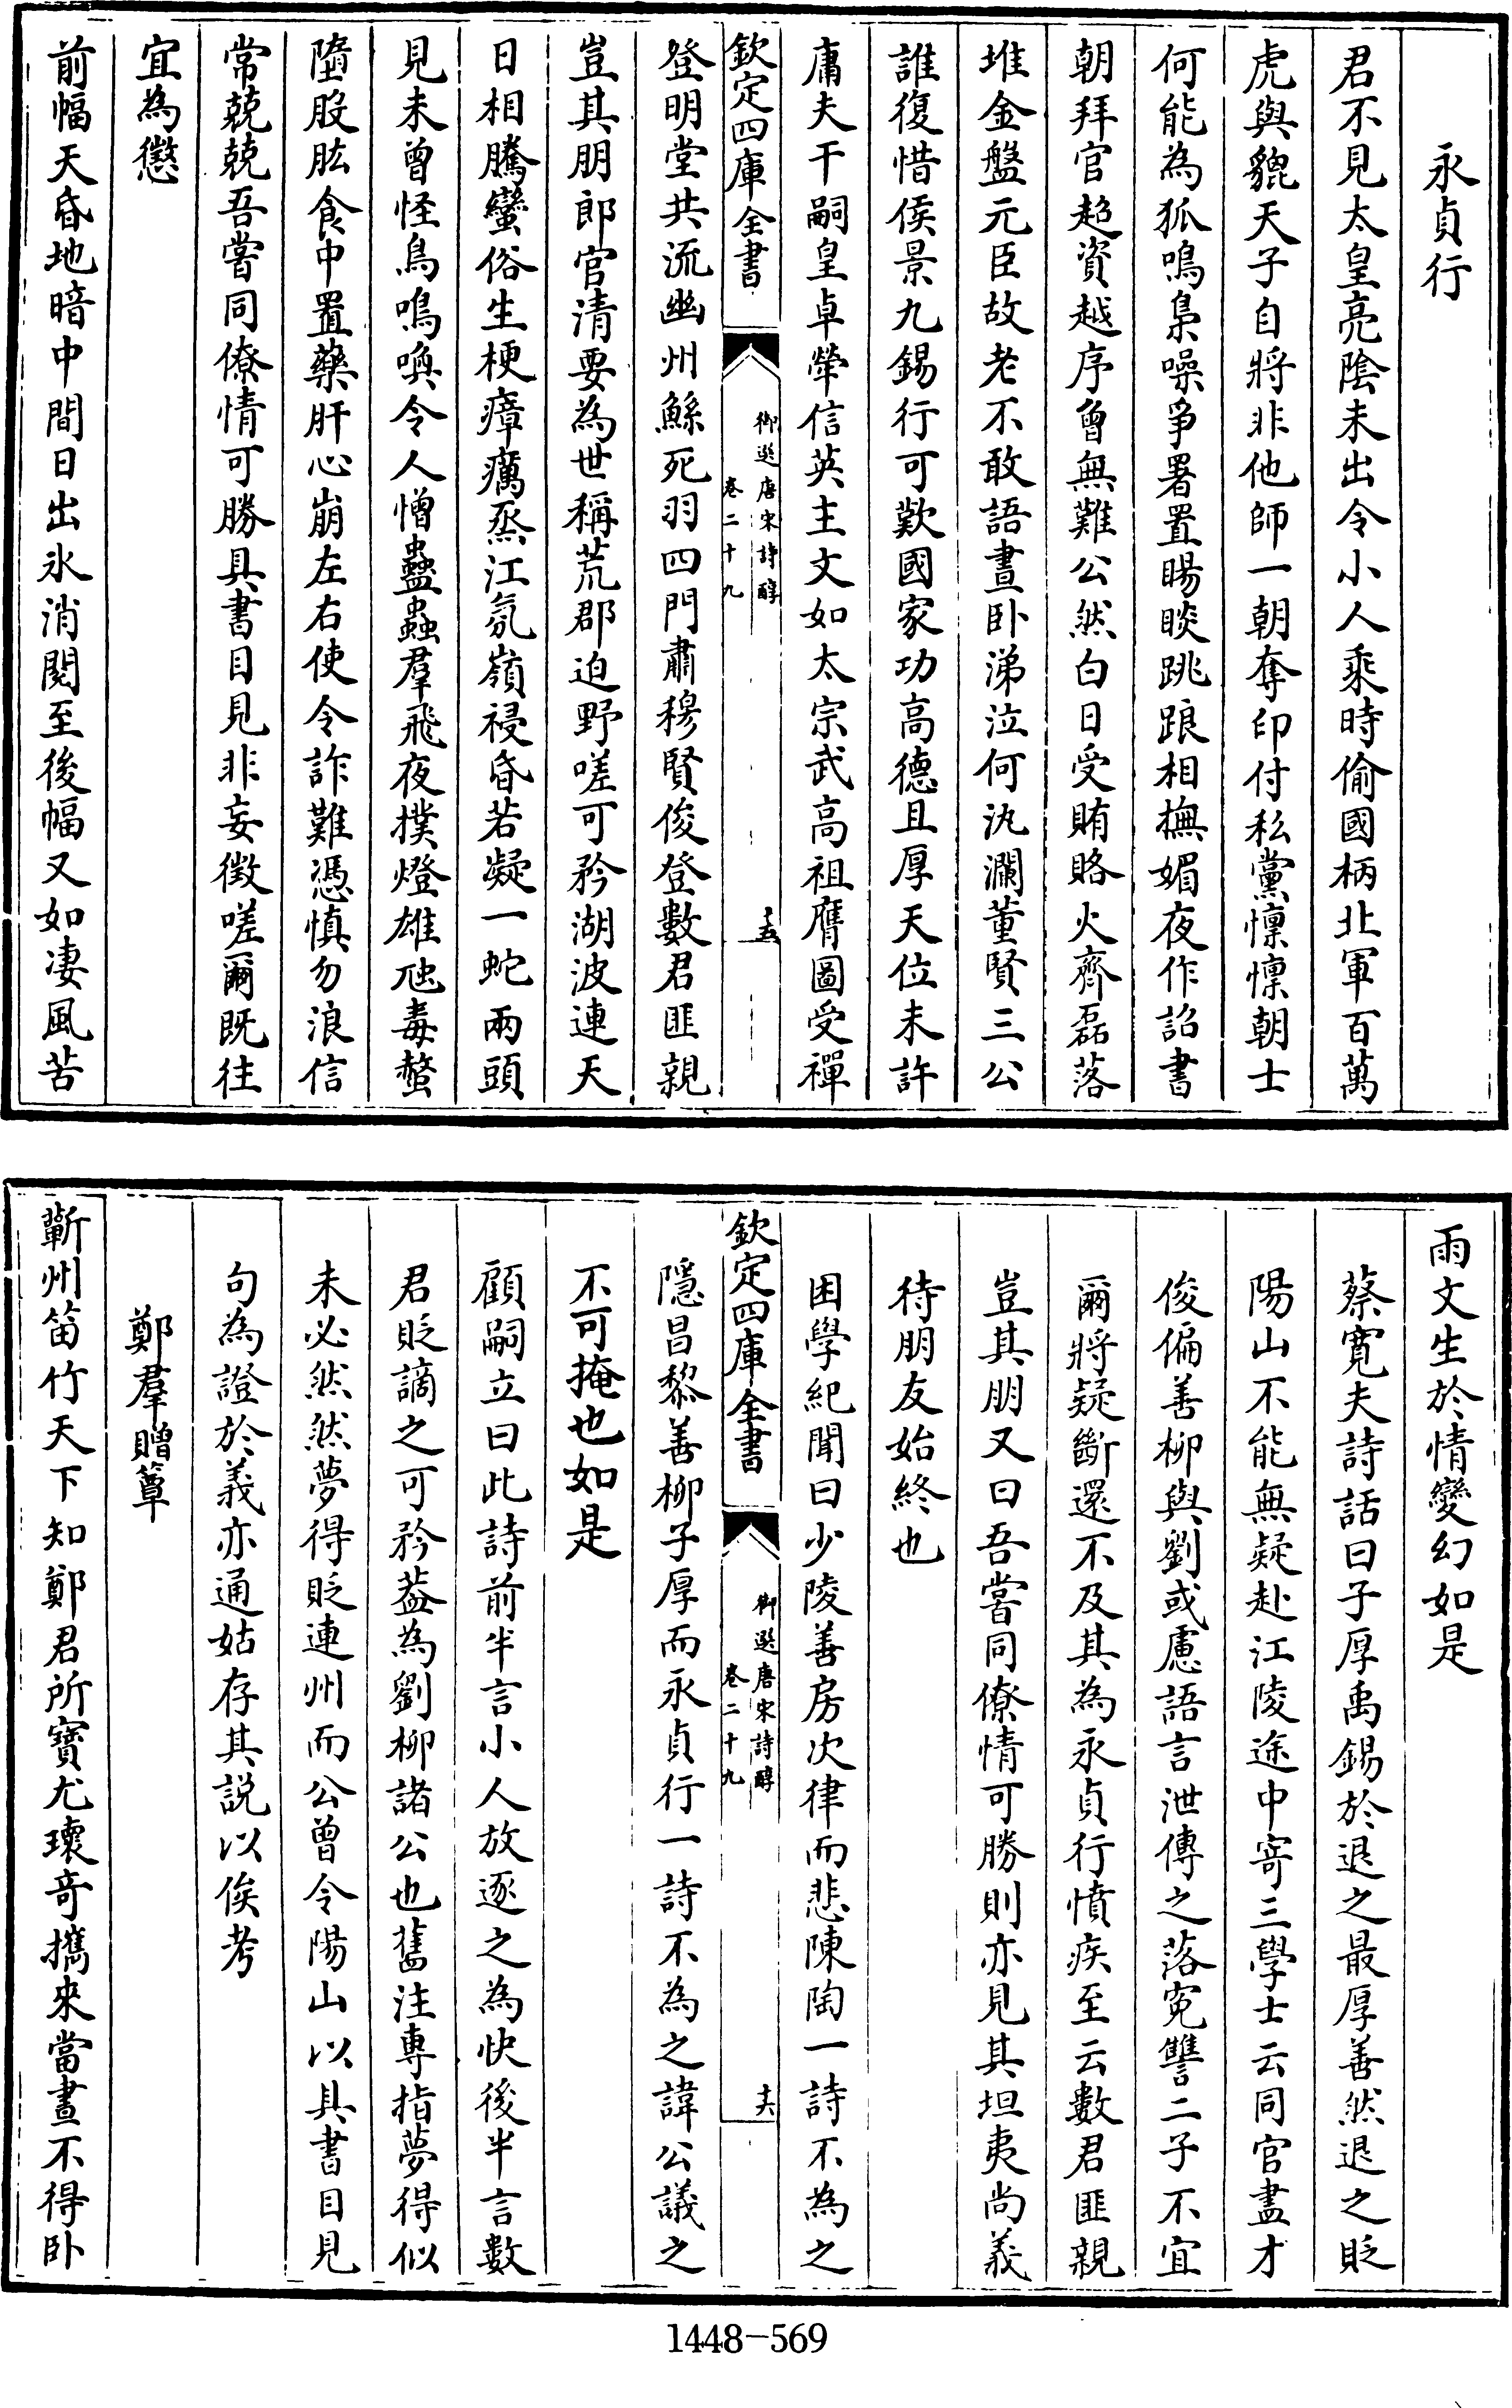 永貞行
君不見太皇亮陰未出令小人乘時偷國柄北軍百萬
虎與貔天子自將非他師一朝奪印付私黨懍懍朝士
何能為狐鳴梟噪爭署置睗睒跳踉相撫媚夜作詔書
朝拜官超資越序曾無難公然白日受賄賂火齊磊落
堆金盤元臣故老不敢語晝卧涕泣何汍瀾董賢三公
誰復惜侯景九錫行可歎國家功高德且厚天位未許
庸夫干嗣皇卓犖信英主文如太宗武高祖膺圖受禪
欽定四庫全書
御選唐宋詩醇
卷二十九
十五
登明堂共流幽州鯀死羽四門肅穆賢俊登數君匪親
豈其朋郎官清要為世稱荒郡迫野嗟可矜湖波連天
日相騰蠻俗生梗瘴癘烝江氛嶺祲昏若凝一蛇兩頭
見未曾怪鳥鳴喚令人憎蠱蟲羣飛夜撲燈雄虺毒螫
墮股肱食中置藥肝心崩左右使令詐難憑慎勿浪信
常兢兢吾嘗同僚情可勝具書目見非妄徵嗟爾既往
宜為懲
前幅天昏地暗中間日出氷消閱至後幅又如淒風苦
雨文生於情變幻如是
蔡寬夫詩話曰子厚禹錫於退之最厚善然退之貶
陽山不能無疑赴江陵途中寄三學士云同官盡才
俊偏善柳與劉或慮語言泄傳之落寃讐二子不宜
爾將疑斷還不及其為永貞行憤疾至云數君匪親
豈其朋又曰吾嘗同僚情可勝則亦見其坦夷尚義
待朋友始終也
困學紀聞曰少陵善房次律而悲陳陶一詩不為之
欽定四庫全書
御選唐宋詩醇
卷二十九
十六
隱昌黎善柳子厚而永貞行一詩不為之諱公議之
不可掩也如是
顧嗣立曰此詩前半言小人放逐之為快後半言數
君貶謫之可矜葢為劉柳諸公也舊注專指夢得似
未必然然夢得貶連州而公曾令陽山以具書目見
句為證於義亦通姑存其説以俟考
鄭羣贈簟
蘄州笛竹天下知鄭君所寶尤瓌奇攜來當晝不得卧
1448-569